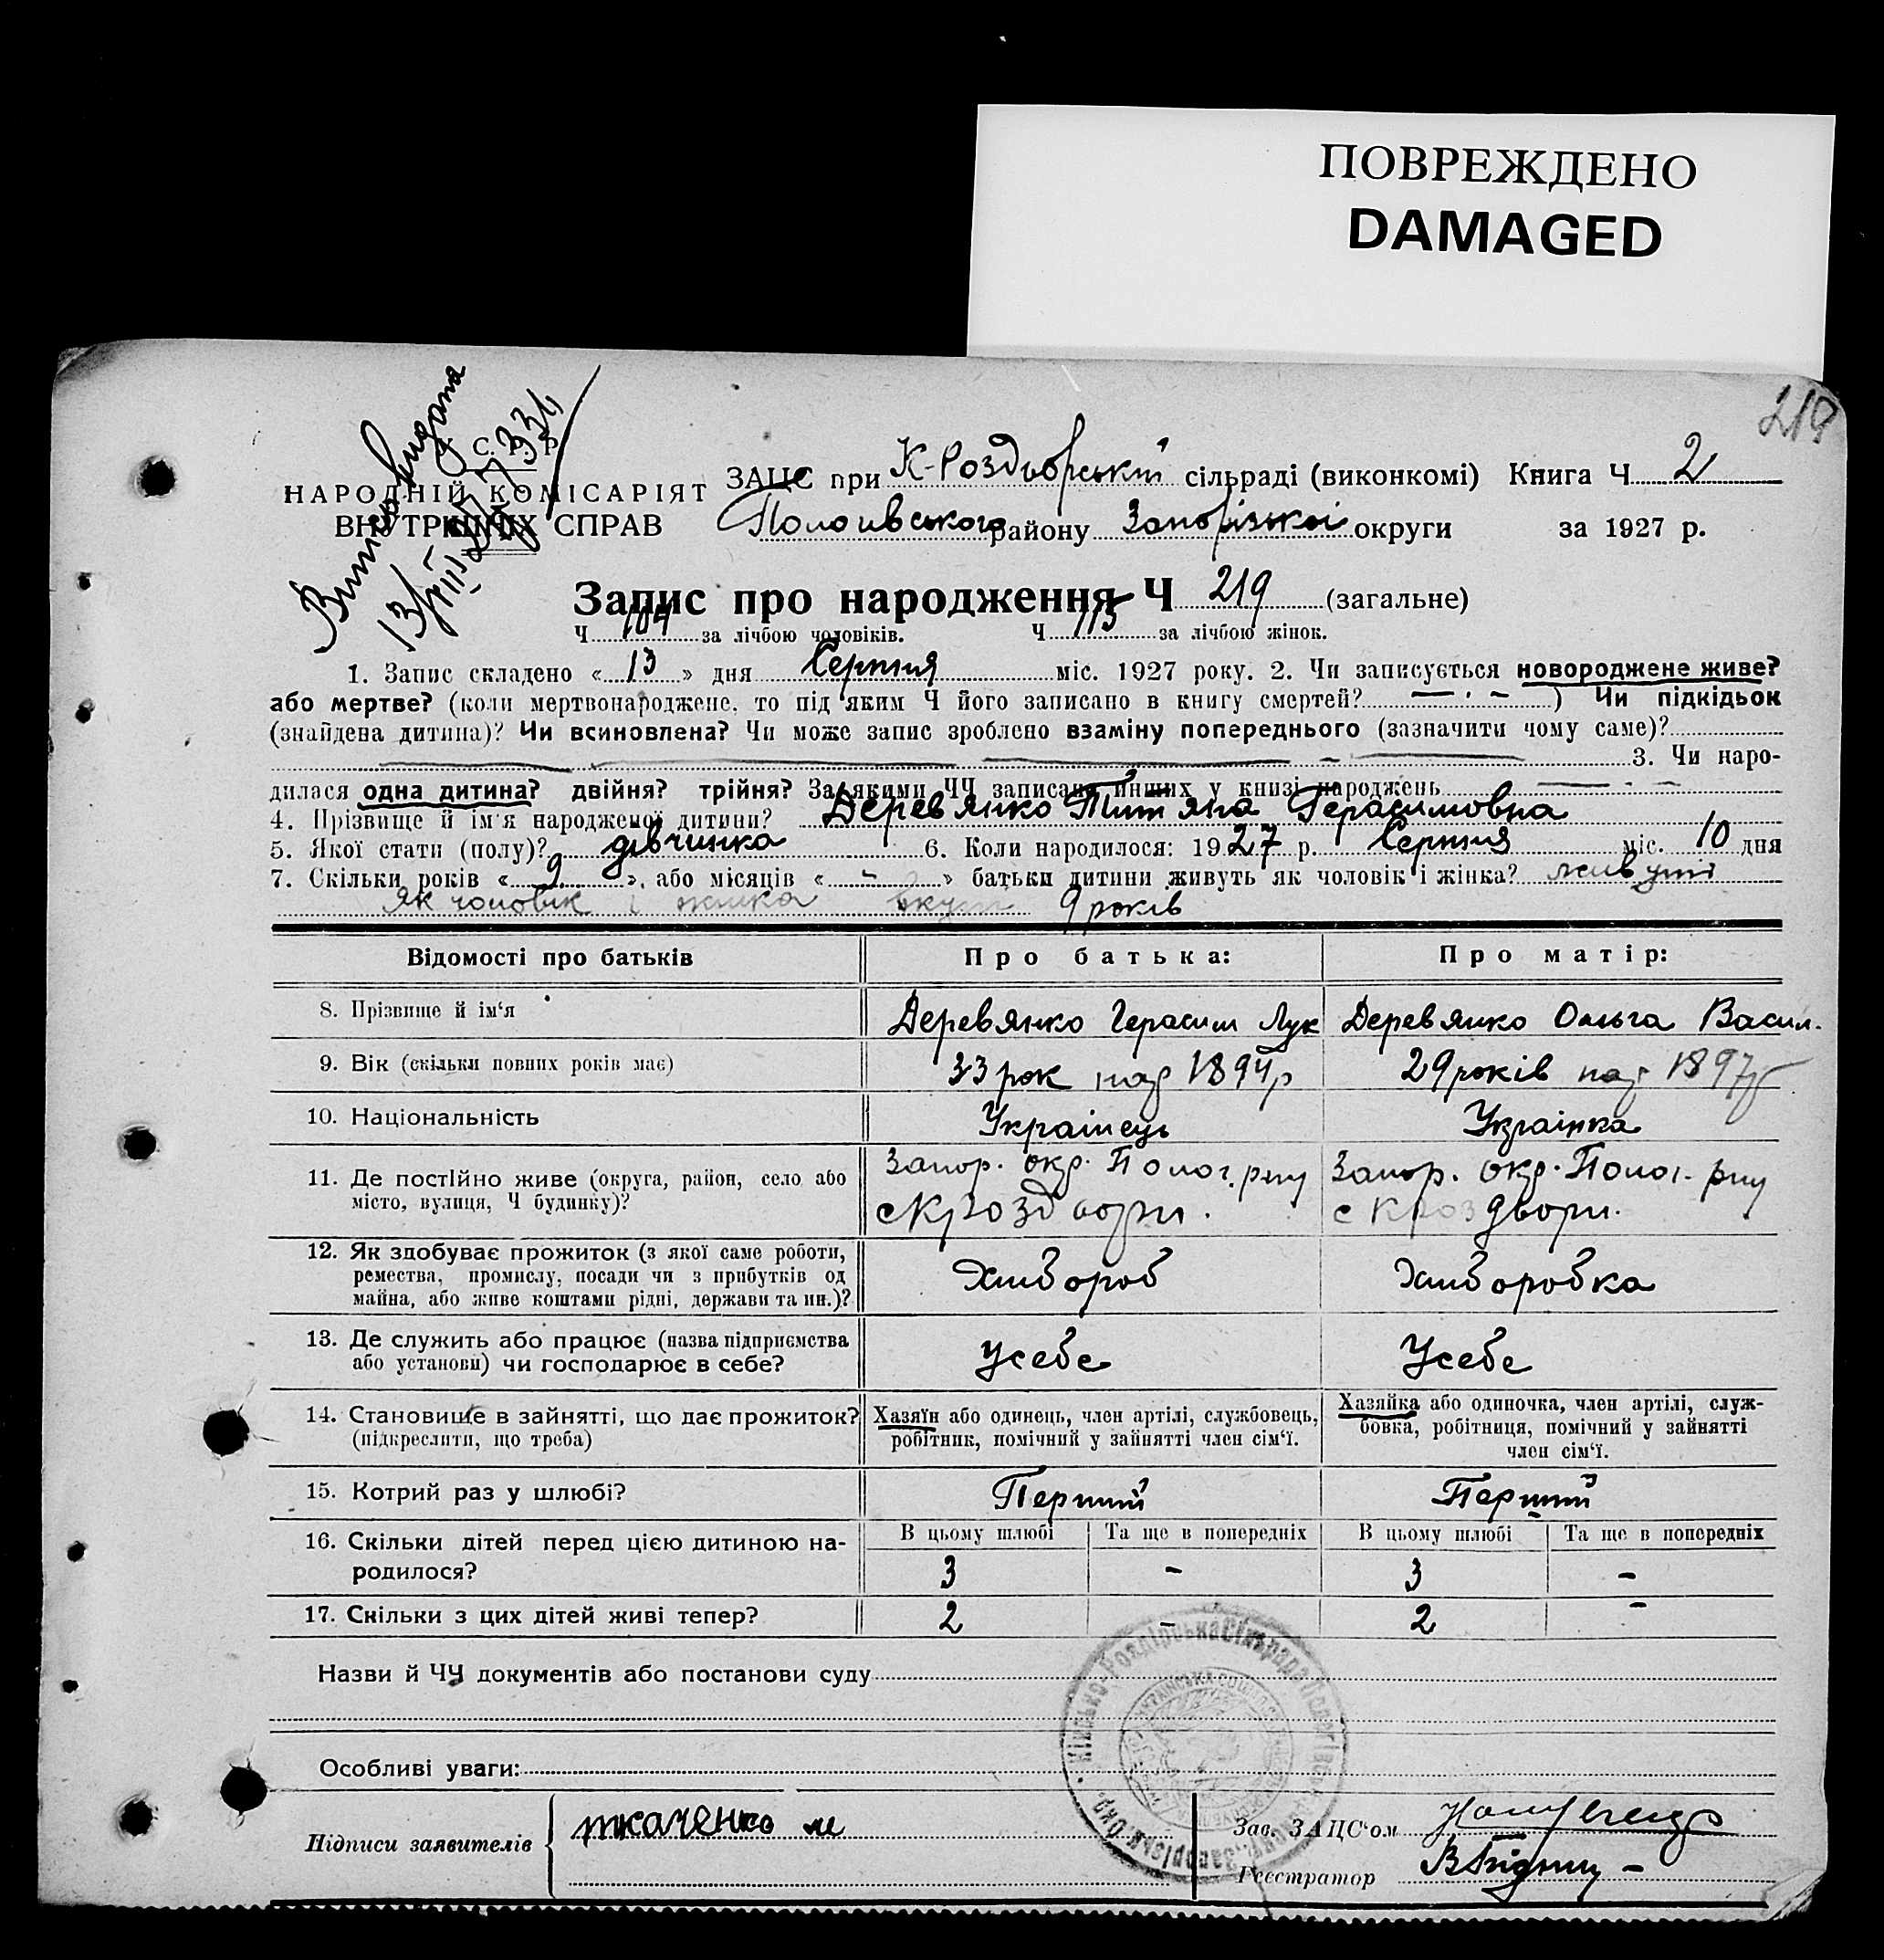 ПОВРЕЖДЕНО
DAMAGED
219
Виписка видана
13/VIII
С. Р. Р.
НАРОДНІЙ КОМІСАРІЯТ
ВНУТРІШНІХ СПРАВ
ЗАЦС при К-Роздорській сільраді (виконкомі) Книга Ч 2
Пологівського району Запорізької округи за 1927 р.
Запис про народження Ч 219 (загальне)
Ч 104 за лічбою чоловіків. Ч 115 за лічбою жінок.
1. Запис складено « 13 » дня Серпня міс. 1927 року. 2. Чи записується новороджене живе?
або мертве? (коли мертвонароджене, то під яким Ч його записано в книгу смертей? — · — ) Чи підкідьок
(знайдена дитина)? Чи всиновлена? Чи може запис зроблено взаміну попереднього (зазначити чому саме)?
3. Чи наро-
дилася одна дитина? двійня? трійня? За якими ЧЧ записано инших у книзі народжень
4. Прізвище й ім'я народженої дитини? Деревянко Титяна Герасимовна
5. Якої стати (полу)? дівчинка 6. Коли народилося: 1927 р. Серпня міс. 10 дня
7. Скільки років « 9 », або місяців « - » батьки дитини живуть як чоловік і жінка? живуть
як чоловік і жинка вкупі 9 років
Відомості про батьків Про батька: Про матір:
8. Прізвище й ім‘я Деревянко Герасим Лук Деревянко Ольга Васил.
9. Вік (скільки повних років має) 33 рок нар 1894р 29 років нар 1897р
10. Національність Українець Українка
11. Де постійно живе (округа, район, село або місто, вулиця, Ч будинку)? Запор. окр. Полог. рну Запор. окр. Полог. рну
с Кроздори. с Кроздвори.
12. Як здобуває прожиток (з якої саме роботи,
ремества, промислу, посади чи з прибутків од
майна, або живе коштами рідні, держави та ин.)? Хлибороб Хлиборобка
13. Де служить або працює (назва підприємства
або установи) чи господарює в себе? Усебе Усебе
14. Становище в зайнятті, що дає прожиток?
(підкреслити, що треба)
Хазяїн або одинець, член артілі, службовець,
робітник, помічний у зайнятті член сім‘ї.
Хазяйка або одиночка, член артілі, служ-
бовка, робітниця, помічний у зайнятті
член сім‘ї.
15. Котрий раз у шлюбі? Перший Перший
В цьому шлюбі Та ще в попередніх В цьому шлюбі Та ще в попередніх
16. Скільки дітей перед цією дитиною на-
родилося? 3 - 3 -
17. Скільки з цих дітей живі тепер? 2 - 2 -
Назви й ЧЧ документів або постанови суду
Особливі уваги:
Підписи заявителів ткаченко м
Зав. ЗАЦС‘ом
Реєстратор